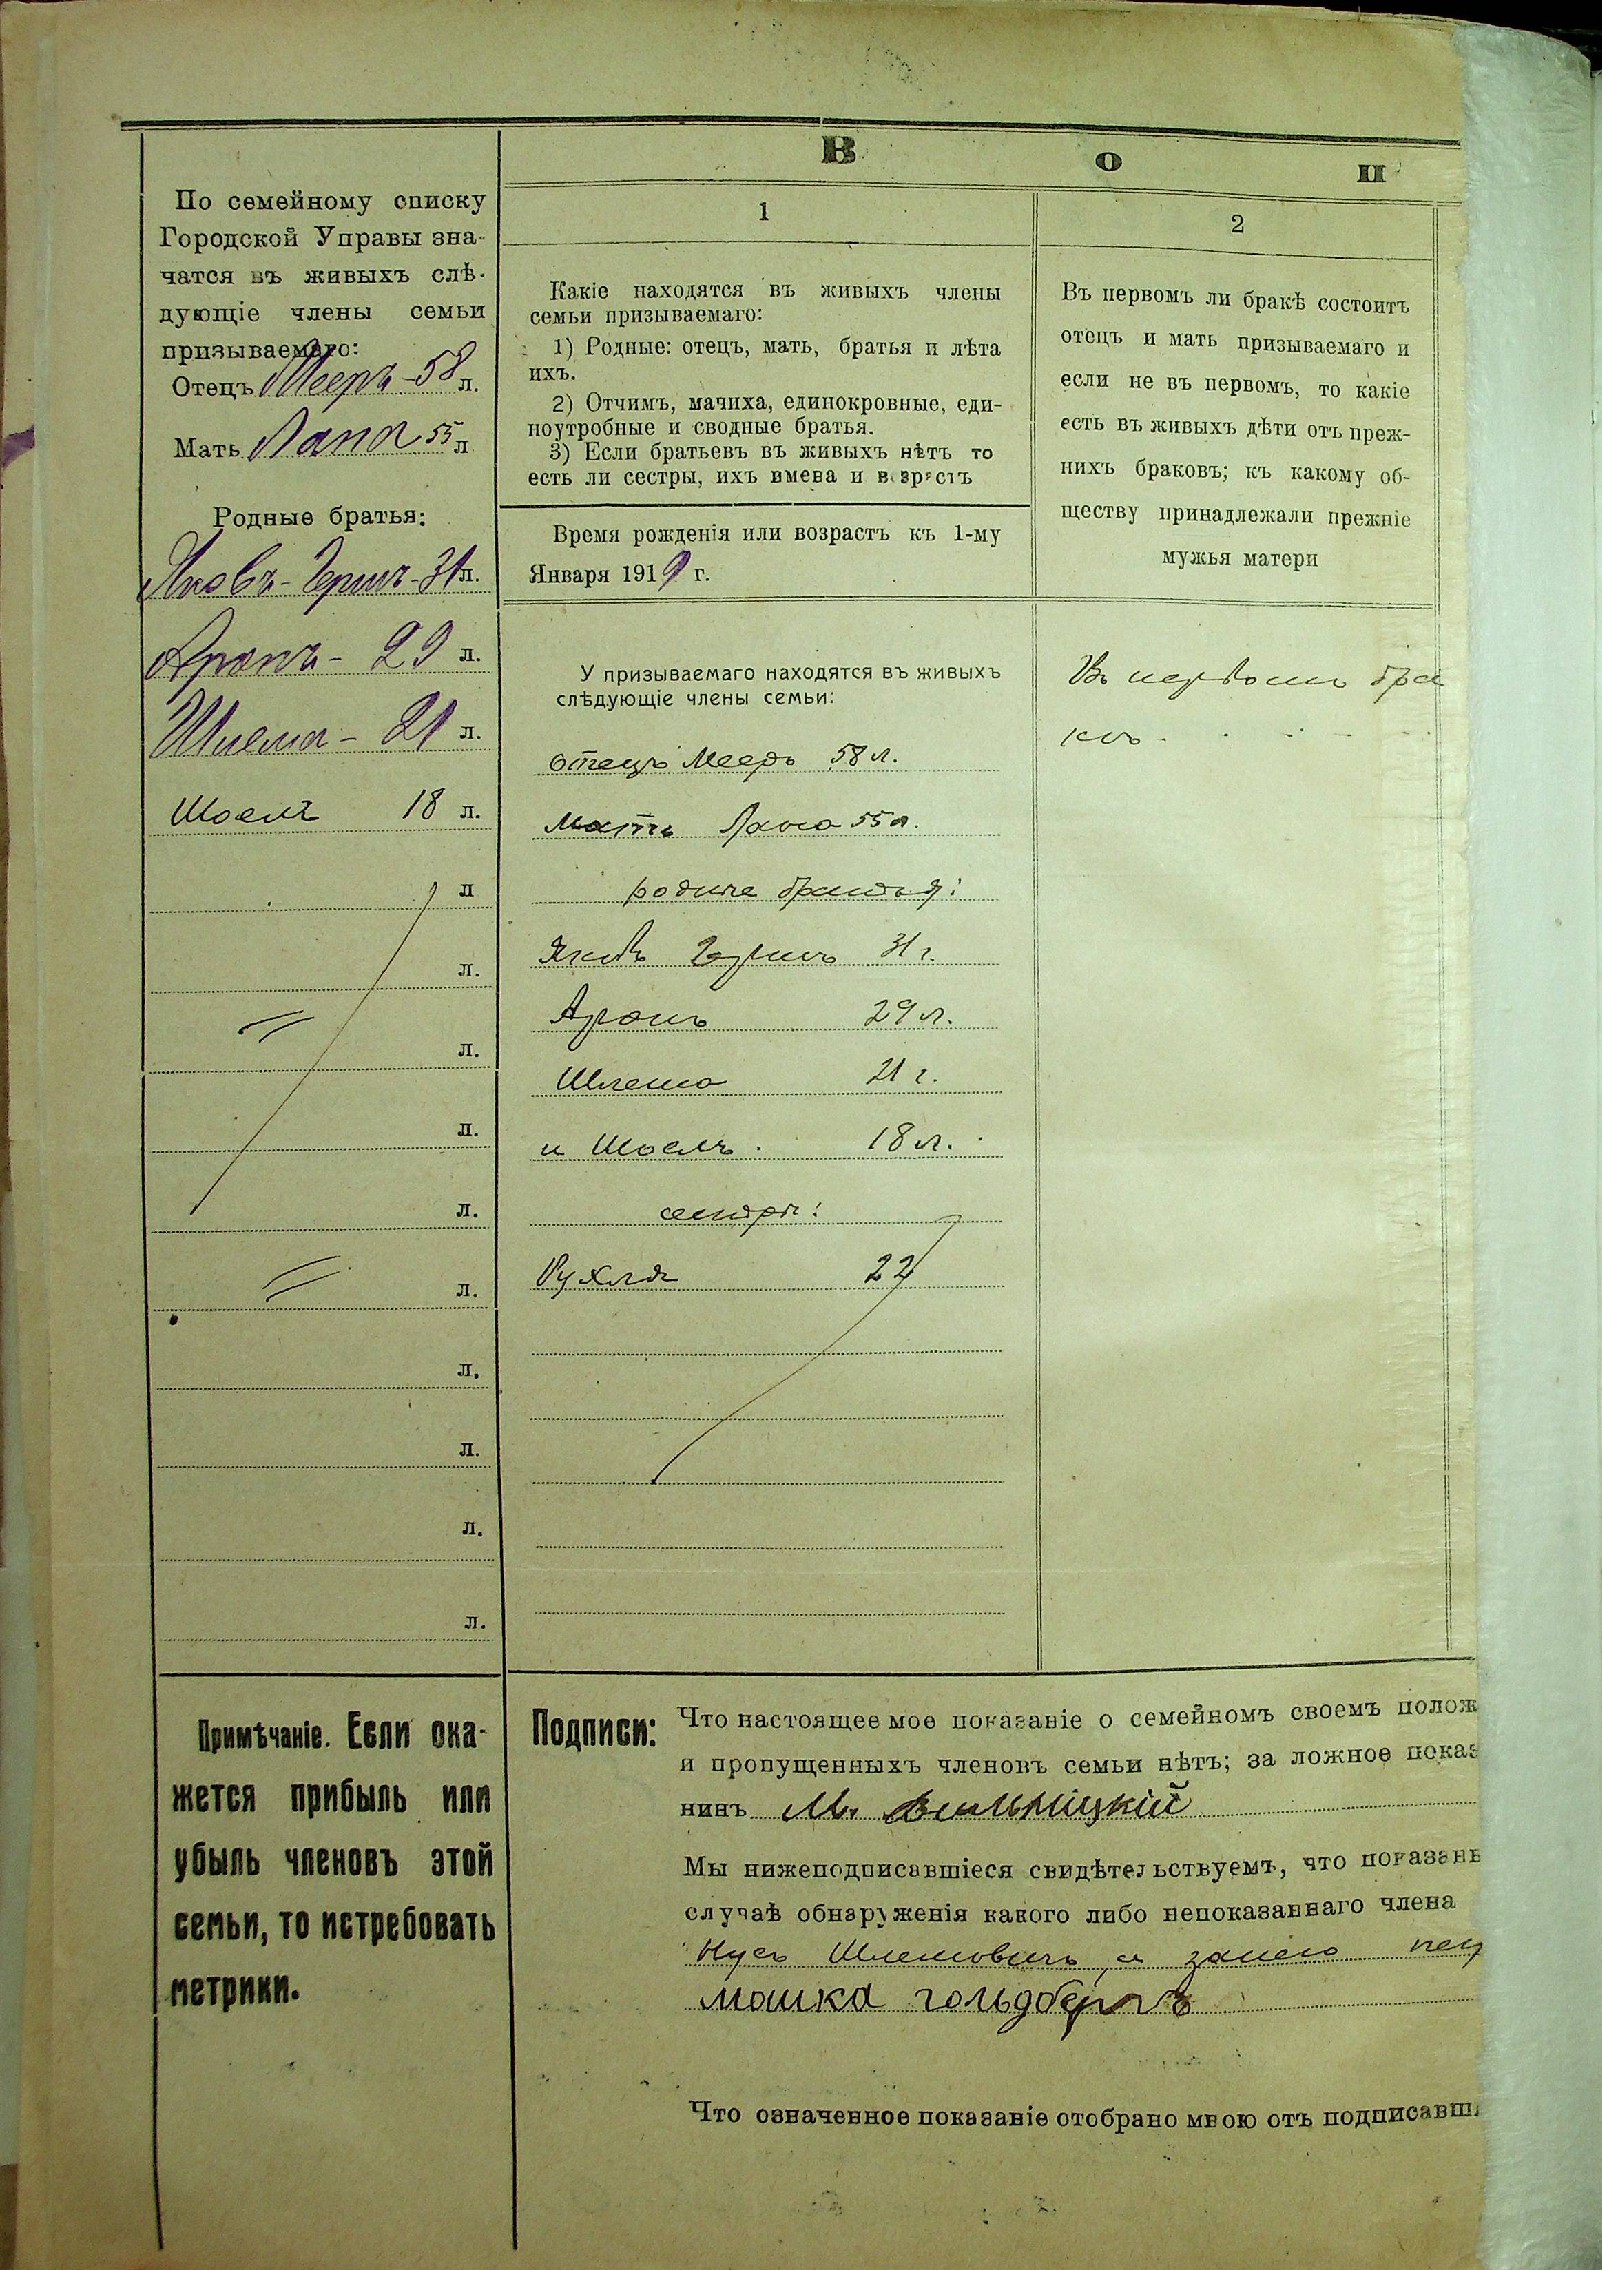 В о п
По семейному списку
Городской Управы зна-
чатся въ живыхъ слѣ-
дующіе члены семьи
призываемаго:
Отецъ Мееръ - 58 л.
Мать Лана 55 л
Родные братья:
Яковъ - Гершъ - 31 л.
Аронъ - 29 л.
Шлема - 21 л.
Шоелъ 18 л.
л
л.
л.
л.
л.
л.
л.
л.
л.
л.
1
Какіе находятся въ живыхъ члены
семьи призываемаго:
1) Родные: отецъ, мать, братья и лѣта
ихъ.
2) Отчимъ, мачиха, единокровные, еди-
ноутробные и сводные братья.
3) Если братьевъ въ живыхъ нѣтъ то
есть ли сестры, ихъ имена и возрастъ
Время рожденія или возрастъ къ 1-му
Января 1919 г.
У призываемаго находятся въ живыхъ
слѣдующіе члены семьи:
отецъ Мееръ 58 л.
мать Лана 55 л.
родные братья:
Яковъ Гершъ 31 г.
Аронъ 29 л.
Шлема 21 г.
и Шоелъ. 18 л.
сестры:
Рухля 22
2
Въ первомъ ли бракѣ состоитъ
отецъ и мать призываемаго и
если не въ первомъ, то какіе
есть въ живыхъ дѣти отъ преж-
нихъ браковъ; къ какому об-
ществу принадлежали прежніе
мужья матери
Въ первомъ бра
кѣ
Примѣчаніе. Если ока-
жется прибыль или
убыль членовъ этой
семьи, то истребовать
метрики.
Подписи: Что настоящее мое показаніе о семейномъ своемъ полож
и пропущенныхъ членовъ семьи нѣтъ; за ложное показ
нинъ М.
Мы нижеподписавшіеся свидѣтельствуемъ, что показань
случаѣ обнаруженія какого либо непоказаннаго члена
Шлемовичъ, а за него
мошка гольдбергъ
Что означенное показаніе отобрано мною отъ подписавш